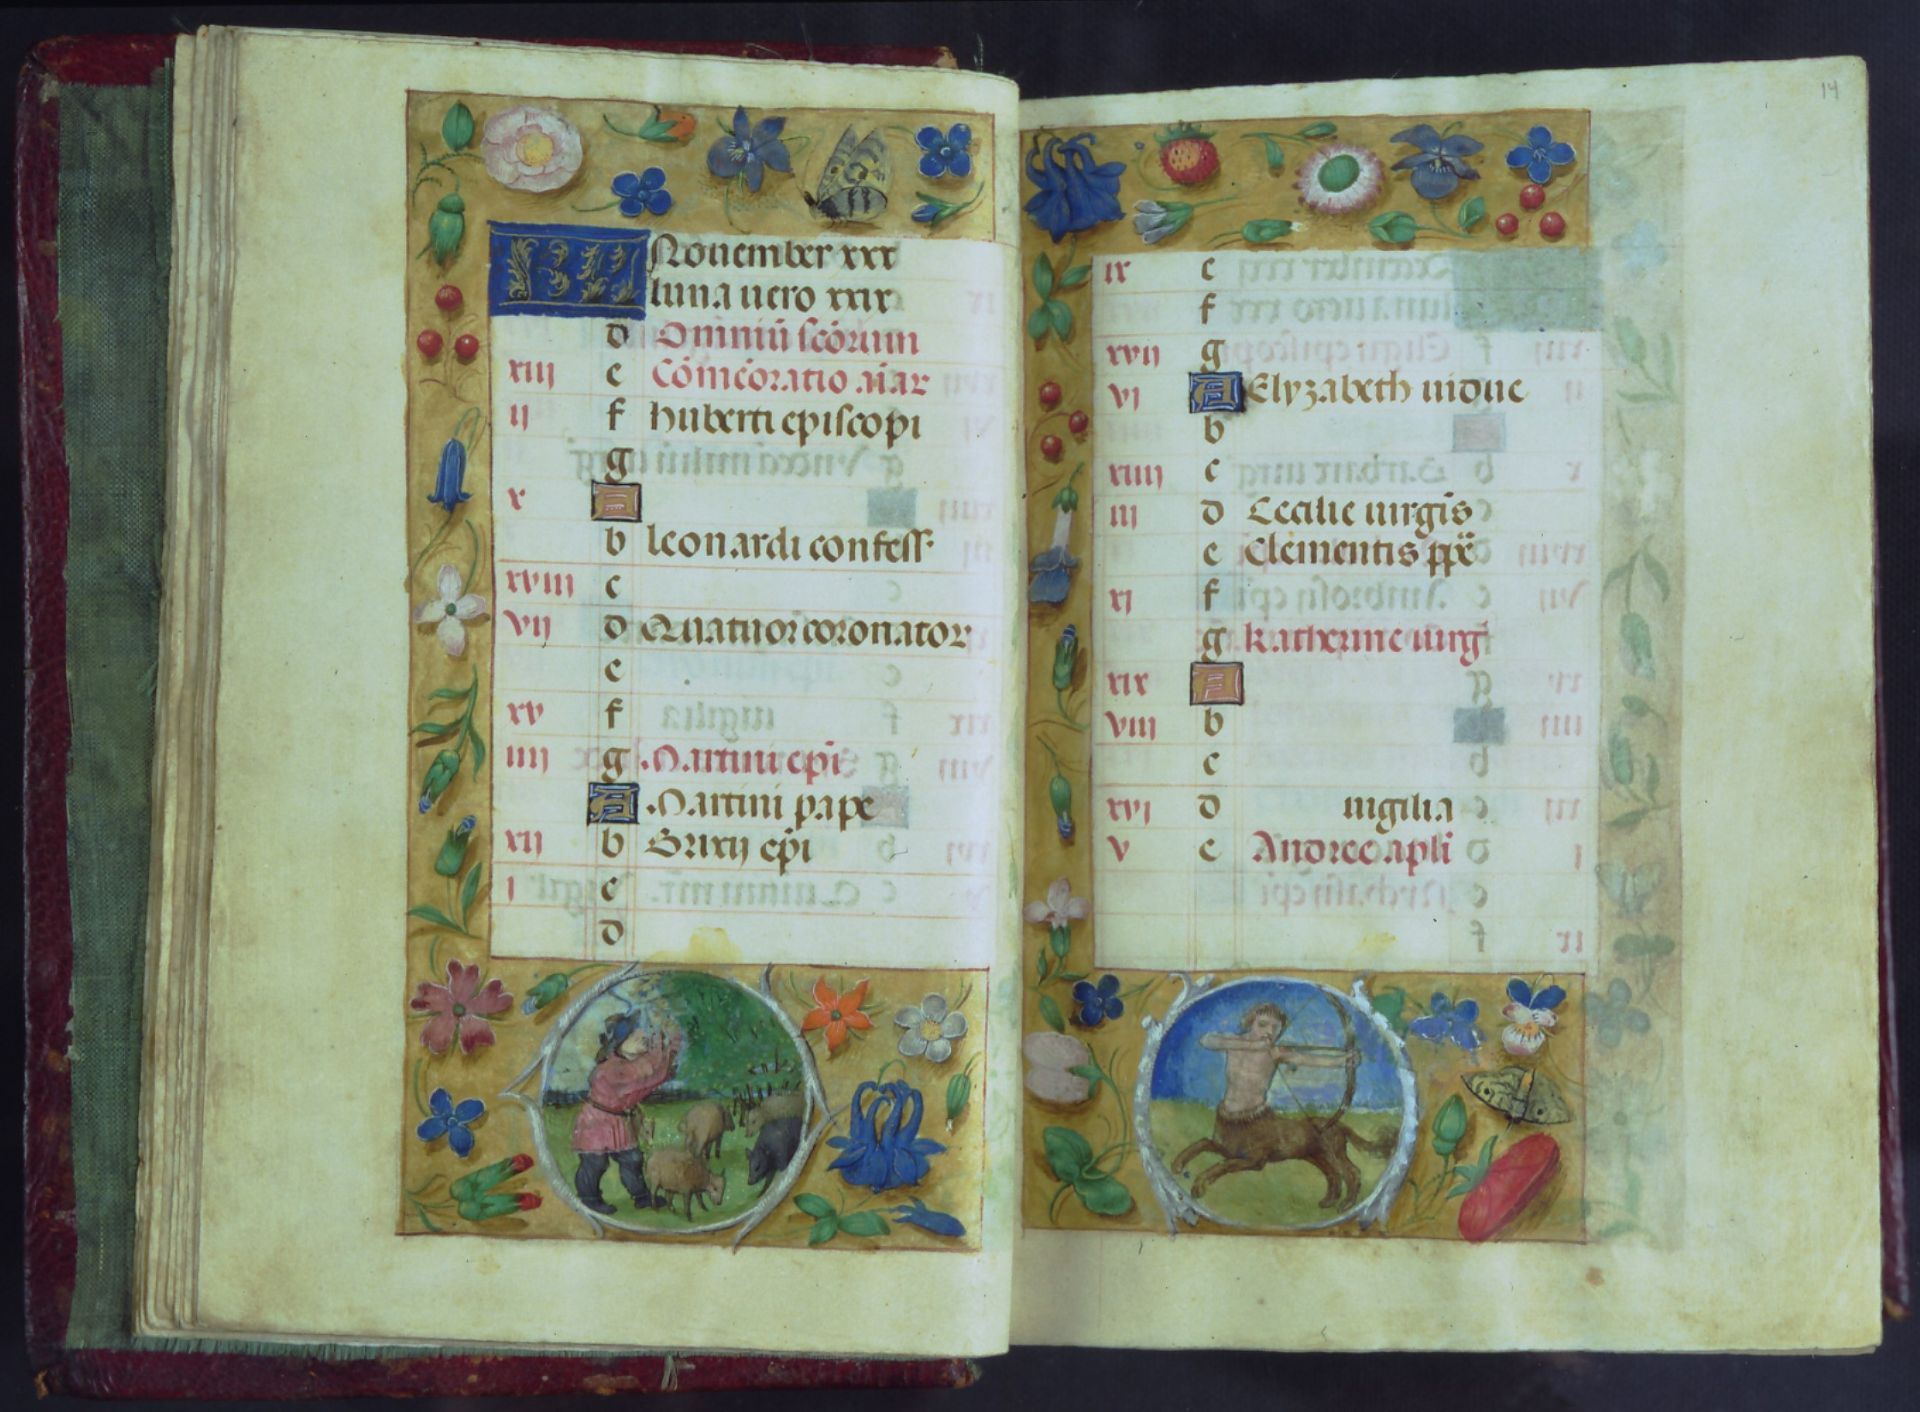 KL Nouember xxx
luna uero xxix
d Omniū scōrum
xiii e Cōmēoratio aīar
ij f huberti episcopi
g
x A
b leonardi confess.
xviii c
vij d Quatuor coronator
e
xv f
iiij g Martini epī
A Martini pape
xij b Brixij epī
j c
d
14
ix e
f
xvij g
vj A Elyzabeth uidue
b
xiiij c
iij d Cecilie uirgīs
e Clementis ppē
xj f
g Katherine uirgī
xix A
viij b
c
xvj d uigilia
v e Andree apli